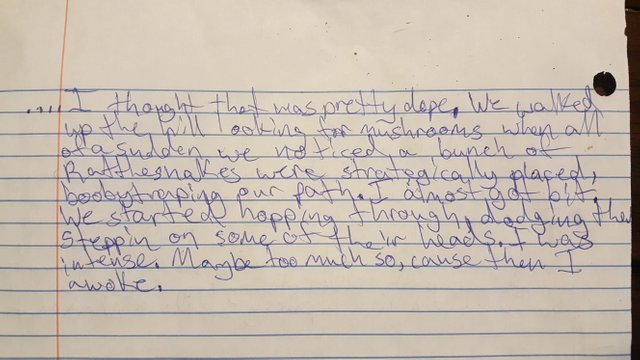 ..... I thought that was pretty dope. We walked
up the hill looking for mushrooms when all
of a sudden we noticed a bunch of
Rattlesnakes were strategically placed,
boobytraping our path. I almost got bit.
We started hopping through, dodging them
Steppin on some of their heads. I was
intense. Maybe too much so, cause then I
awoke.